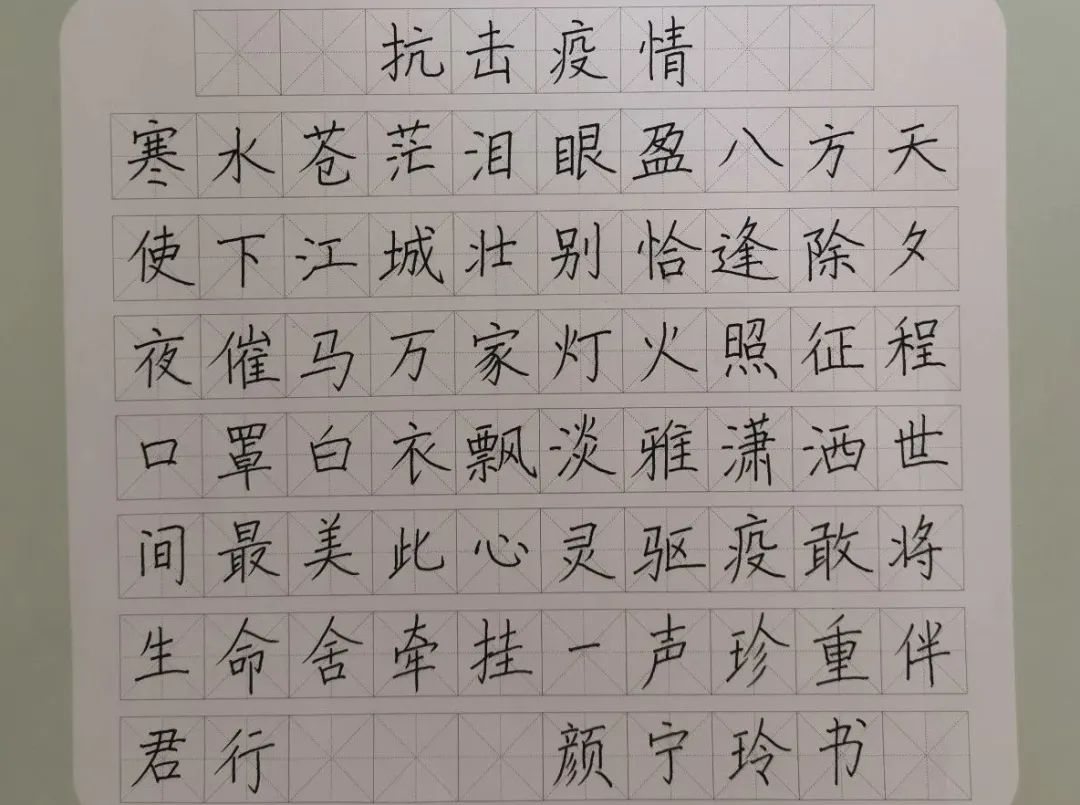 抗击疫情
寒水苍茫泪眼盈八方天
使下江城壮别恰逢除夕
夜催马万家灯火照征程
口罩白衣飘淡雅潇洒世
间最美此心灵驱疫敢将
生命舍牵挂一声珍重伴
君行 颜宁玲书